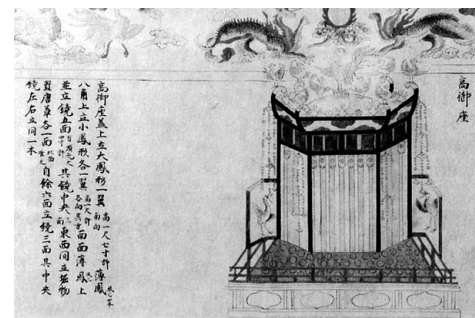 高御座
高御座蓋上立大鳳形一翼 高一尺七寸許 南向 薄鳳
八角上立小鳳形各一翼 高一尺許 各向其方 面面薄鳳上
並立鏡五面 其鏡中央 東西間立堀物
置唐草各一面 自餘六面立鏡三面其中央
鏡左右立同一本